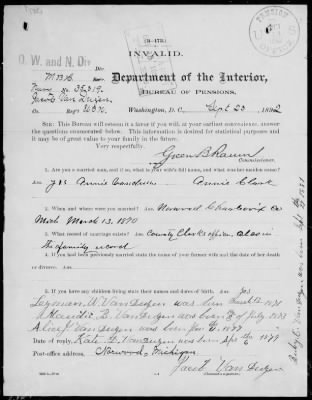 (3-173.)
INVALID.
O. W. and N. Div.
Department of the Interior,
BUREAU OF PENSIONS,
Washington, D. C., Sept 23, 1892
PENSION
U S
OFFICE
SIR: This Bureau will esteem it a favor if you will, at your earliest convenience, answer
the questions enumerated below. This information is desired for statistical purposes and
it may be of great value to your family in the future.
Very respectfully,
Green B Raum
Commissioner.
1. Are you a married man, and if so, what is your wife's full name, and what was her maiden name?
Ans. yes Annie Annie Clark
2. When, where, and by whom were you married?
Ans. Norwood Charlevoix Co
Mich March 13. 1870
3. What record of marriage exists? Ans. County Clerks office also in
the family record
4. If you had been previously married state the name of your former wife and the date of her
death or divorce.
5. Have you any children living state their names and dates of birth. Ans. Yes
Van Deusen was born March 12. 1871
E. VanDeusen was born of July 1873
Alice J Van Deusen was born Jan 1877
Date of reply, Kate D. VanDeusen was born Sept 6 1879
Post-office address, Norwood, Michigan
Jacob Van Deusen
Ruby E. VanDeusen was born Sept the 1881